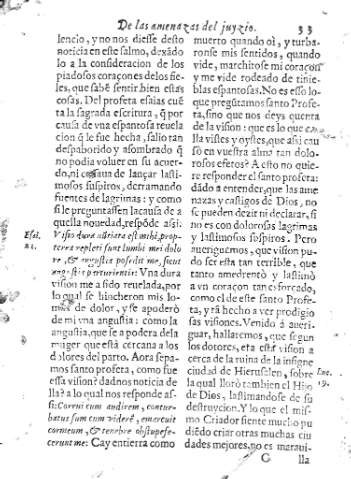 De las amenazas del juyzio. 33
lencio, y no nos diesse desto
noticia en este salmo, dexãdo
lo a la consideracion de los
piadosos coraçones de los fie-
les, que sabē sentir bien estas
cosas. Del profeta esaias cuē
ta la sagrada escritura, q̄ por
causa de vna espantosa reuela
cion q̄ le fue hecha, salio tan
despaborido y asombrado q̄
no podia voluer en su acuer-
do, ni cessaua de lançar lasti-
mosos suspiros, derramando
fuentes de lagrimas: y como
si le preguntassen la causa de a
quella nouedad, respõde assi:
Esai.
21.
Visio dura nũtiata est mihi, prop-
terea repleti sunt lumbi mei dolo
re, & angustia possedit me, sicut
angustia parturientis: Vna dura
vision me a sido reuelada, por
lo qual se hincheron mis lo-
mos de dolor, y se apoderò
de mi vna angustia: como la
angustia, que se apodera de la
muger que està cercana a los
dolores del parto. Aora sepa-
mos santo profeta, como fue
essa vision? dadnos noticia de
lla? a lo qual nos responde as-
si: Corrui cum audirem, contur-
batus sum cum viderẽ, emarcuit
cor meum, & tenebræ obstupefe-
cerunt me: Cay en tierra como
muerto quando oì, y turba-
ronse mis sentidos, quando
vide, marchitose mi coraçon
y me vide rodeado de tinie-
blas espantosas. No es esso lo-
que pregũtamos santo Profe-
ta, sino que nos deys quenta
de la vision: que es lo que en e-
lla vistes y oystes, que assi cau
sò en vuestra almo tan dolo-
rosos efetos? A esto no quie-
re responder el santo profeta:
dãdo a entender, que las ame
nazas y castigos de Dios, no
se pueden dezir ni declarar, si
no es con dolorosas lagrimas
y lastimosos suspiros. Pero
aueriguemos, que vision pu-
do ser esta tan terrible, que
tanto amedrentò y lastimò
a vn coraçon tan esforçado,
como el de este santo Profe-
ta, y tã hecho a ver prodigio
sas visiones. Venido à aueri-
guar, hallaremos, que segun
los dotores, era esta vision a
cerca de la ruina de la insigne
ciudad de Hierusalen, sobre
Luc.
19.
la qual llorò tambien el Hijo
de Dios, lastimandose de su
destruycion. Y lo que el mis-
mo Criador siente mucho pu
diẽdo criar otras muchas ciu
dades mejores, no es maraui-
G lla